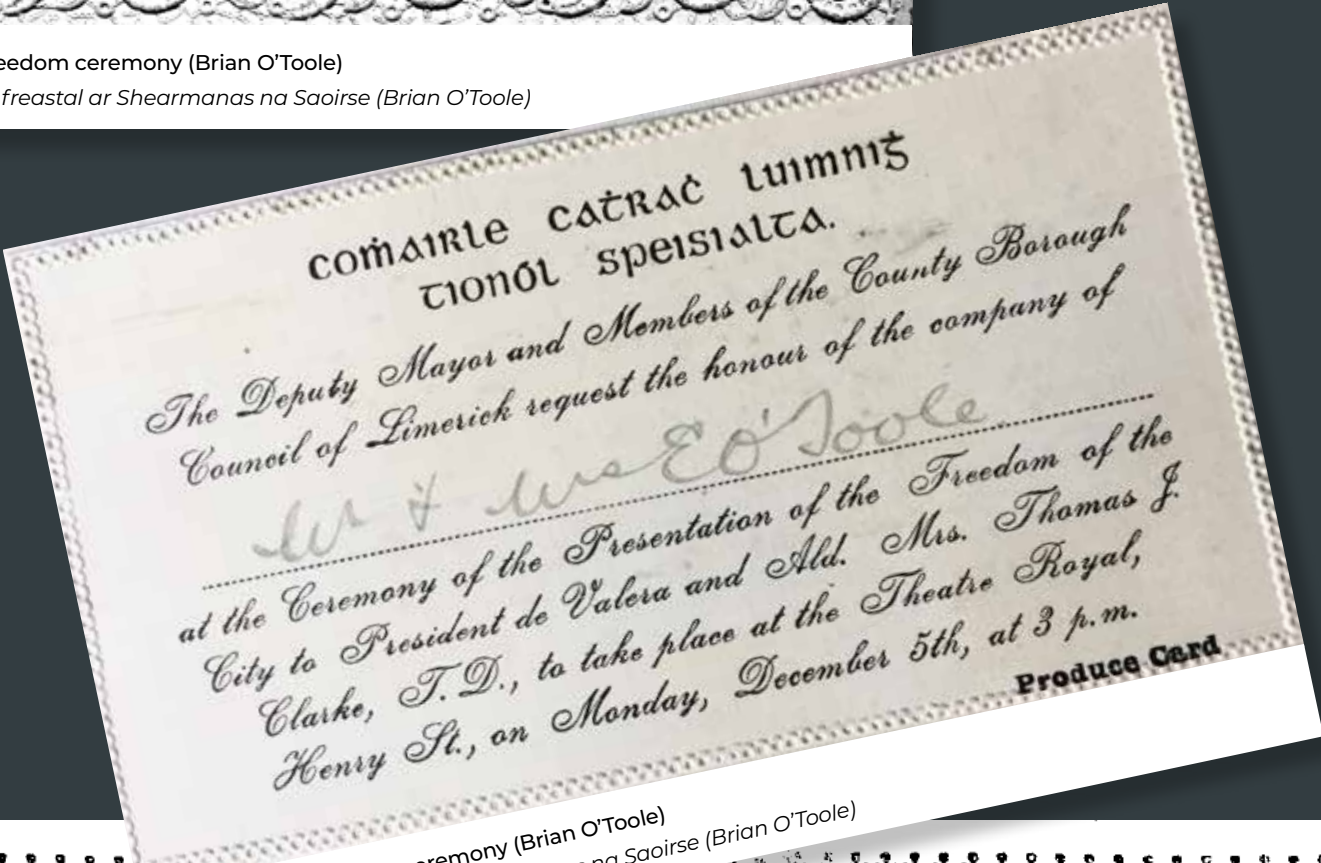 eedom ceremony (Brian O’Toole)
freastal ar Shearmanas na Saoirse (Brian O’Toole)
Coṁairle Caṫraċ Luimniġ
Tionól Speisialta.
The Deputy Mayor and Members of the County Borough
Council of Limerick request the honour of the company of
Mr & Mrs E O'Toole
at the Ceremony of the Presentation of the Freedom of the
City to President de Valera and Ald. Mrs. Thomas J.
Clarke, T.D., to take place at the Theatre Royal,
Henry St., on Monday, December 5th, at 3 p.m.
Produce Card
eremony (Brian O’Toole)
na Saoirse (Brian O’Toole)